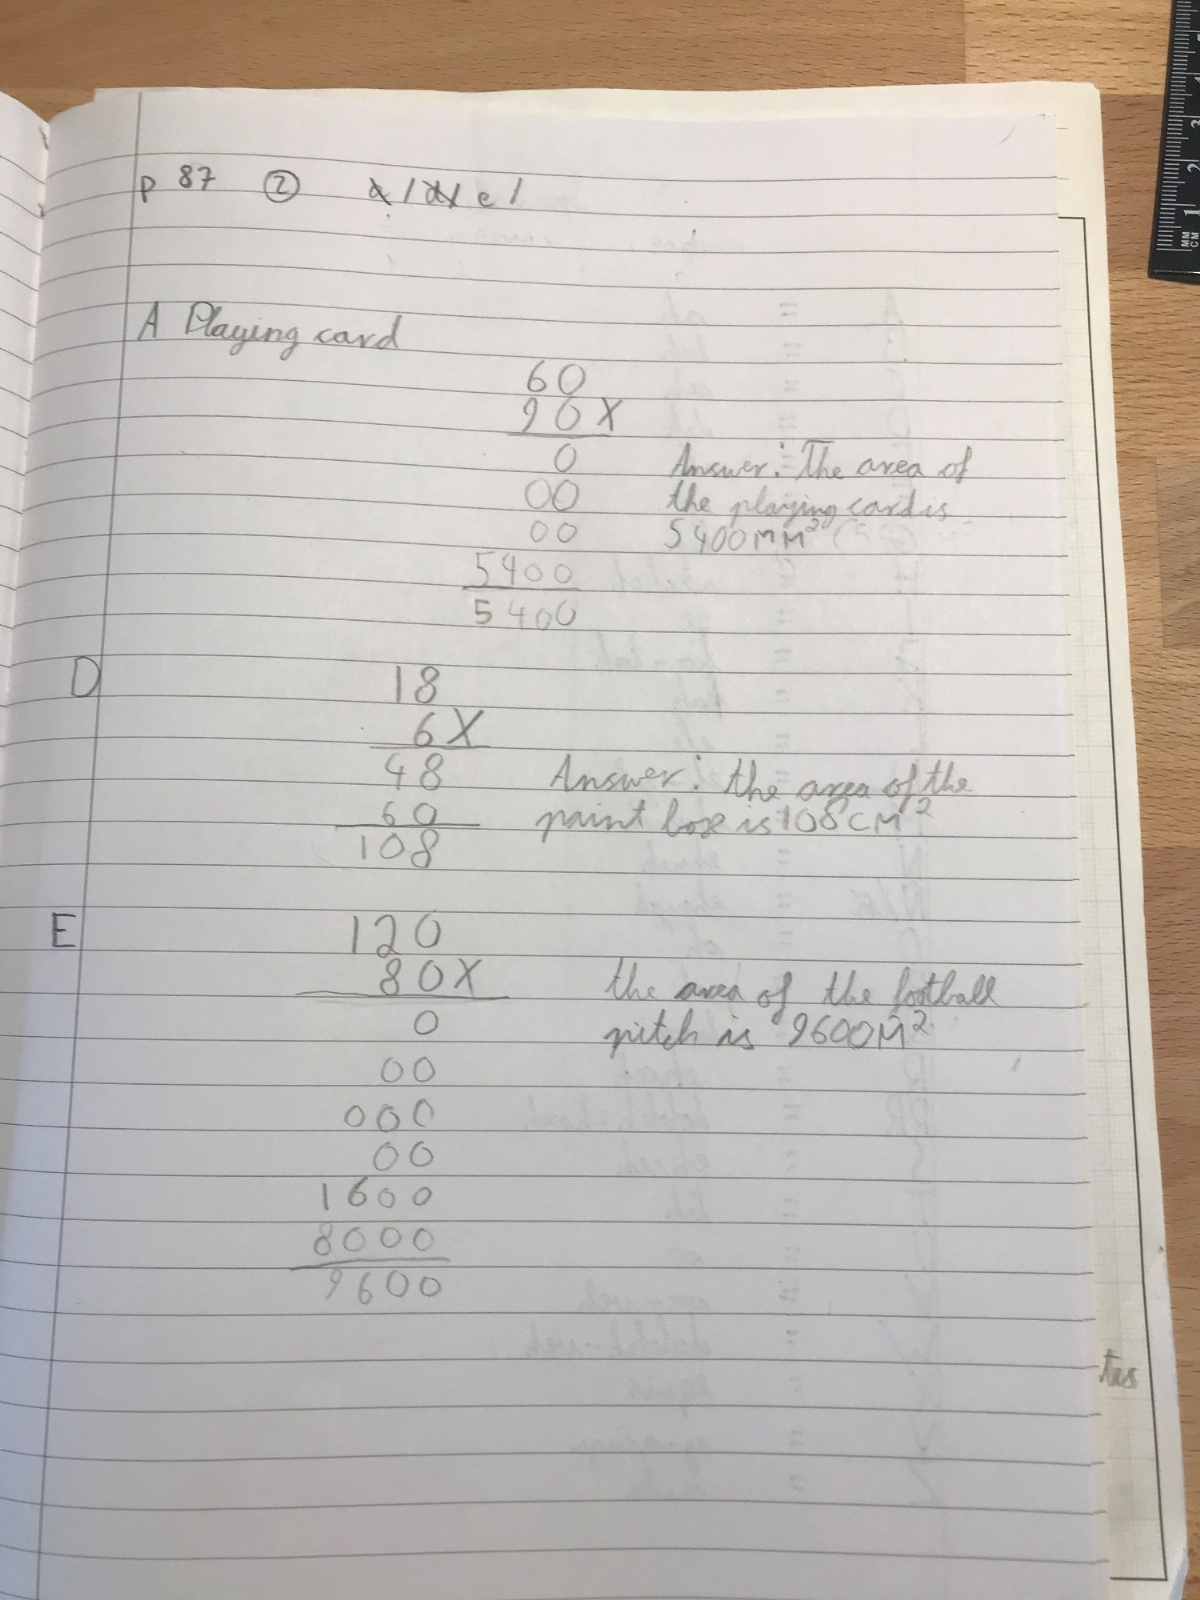 p 87 ② a/d/e/
A Playing card
60
90X
0
00
00
5400
5400
Answer: The area of
the playing card is
5400MM²
D
18
6X
48
60
108
Answer: the area of the
paint box is 108CM²
E
120
80X
0
00
000
00
1600
8000
9600
the area of the football
pitch is 9600M²
MM
CM
1
2
3